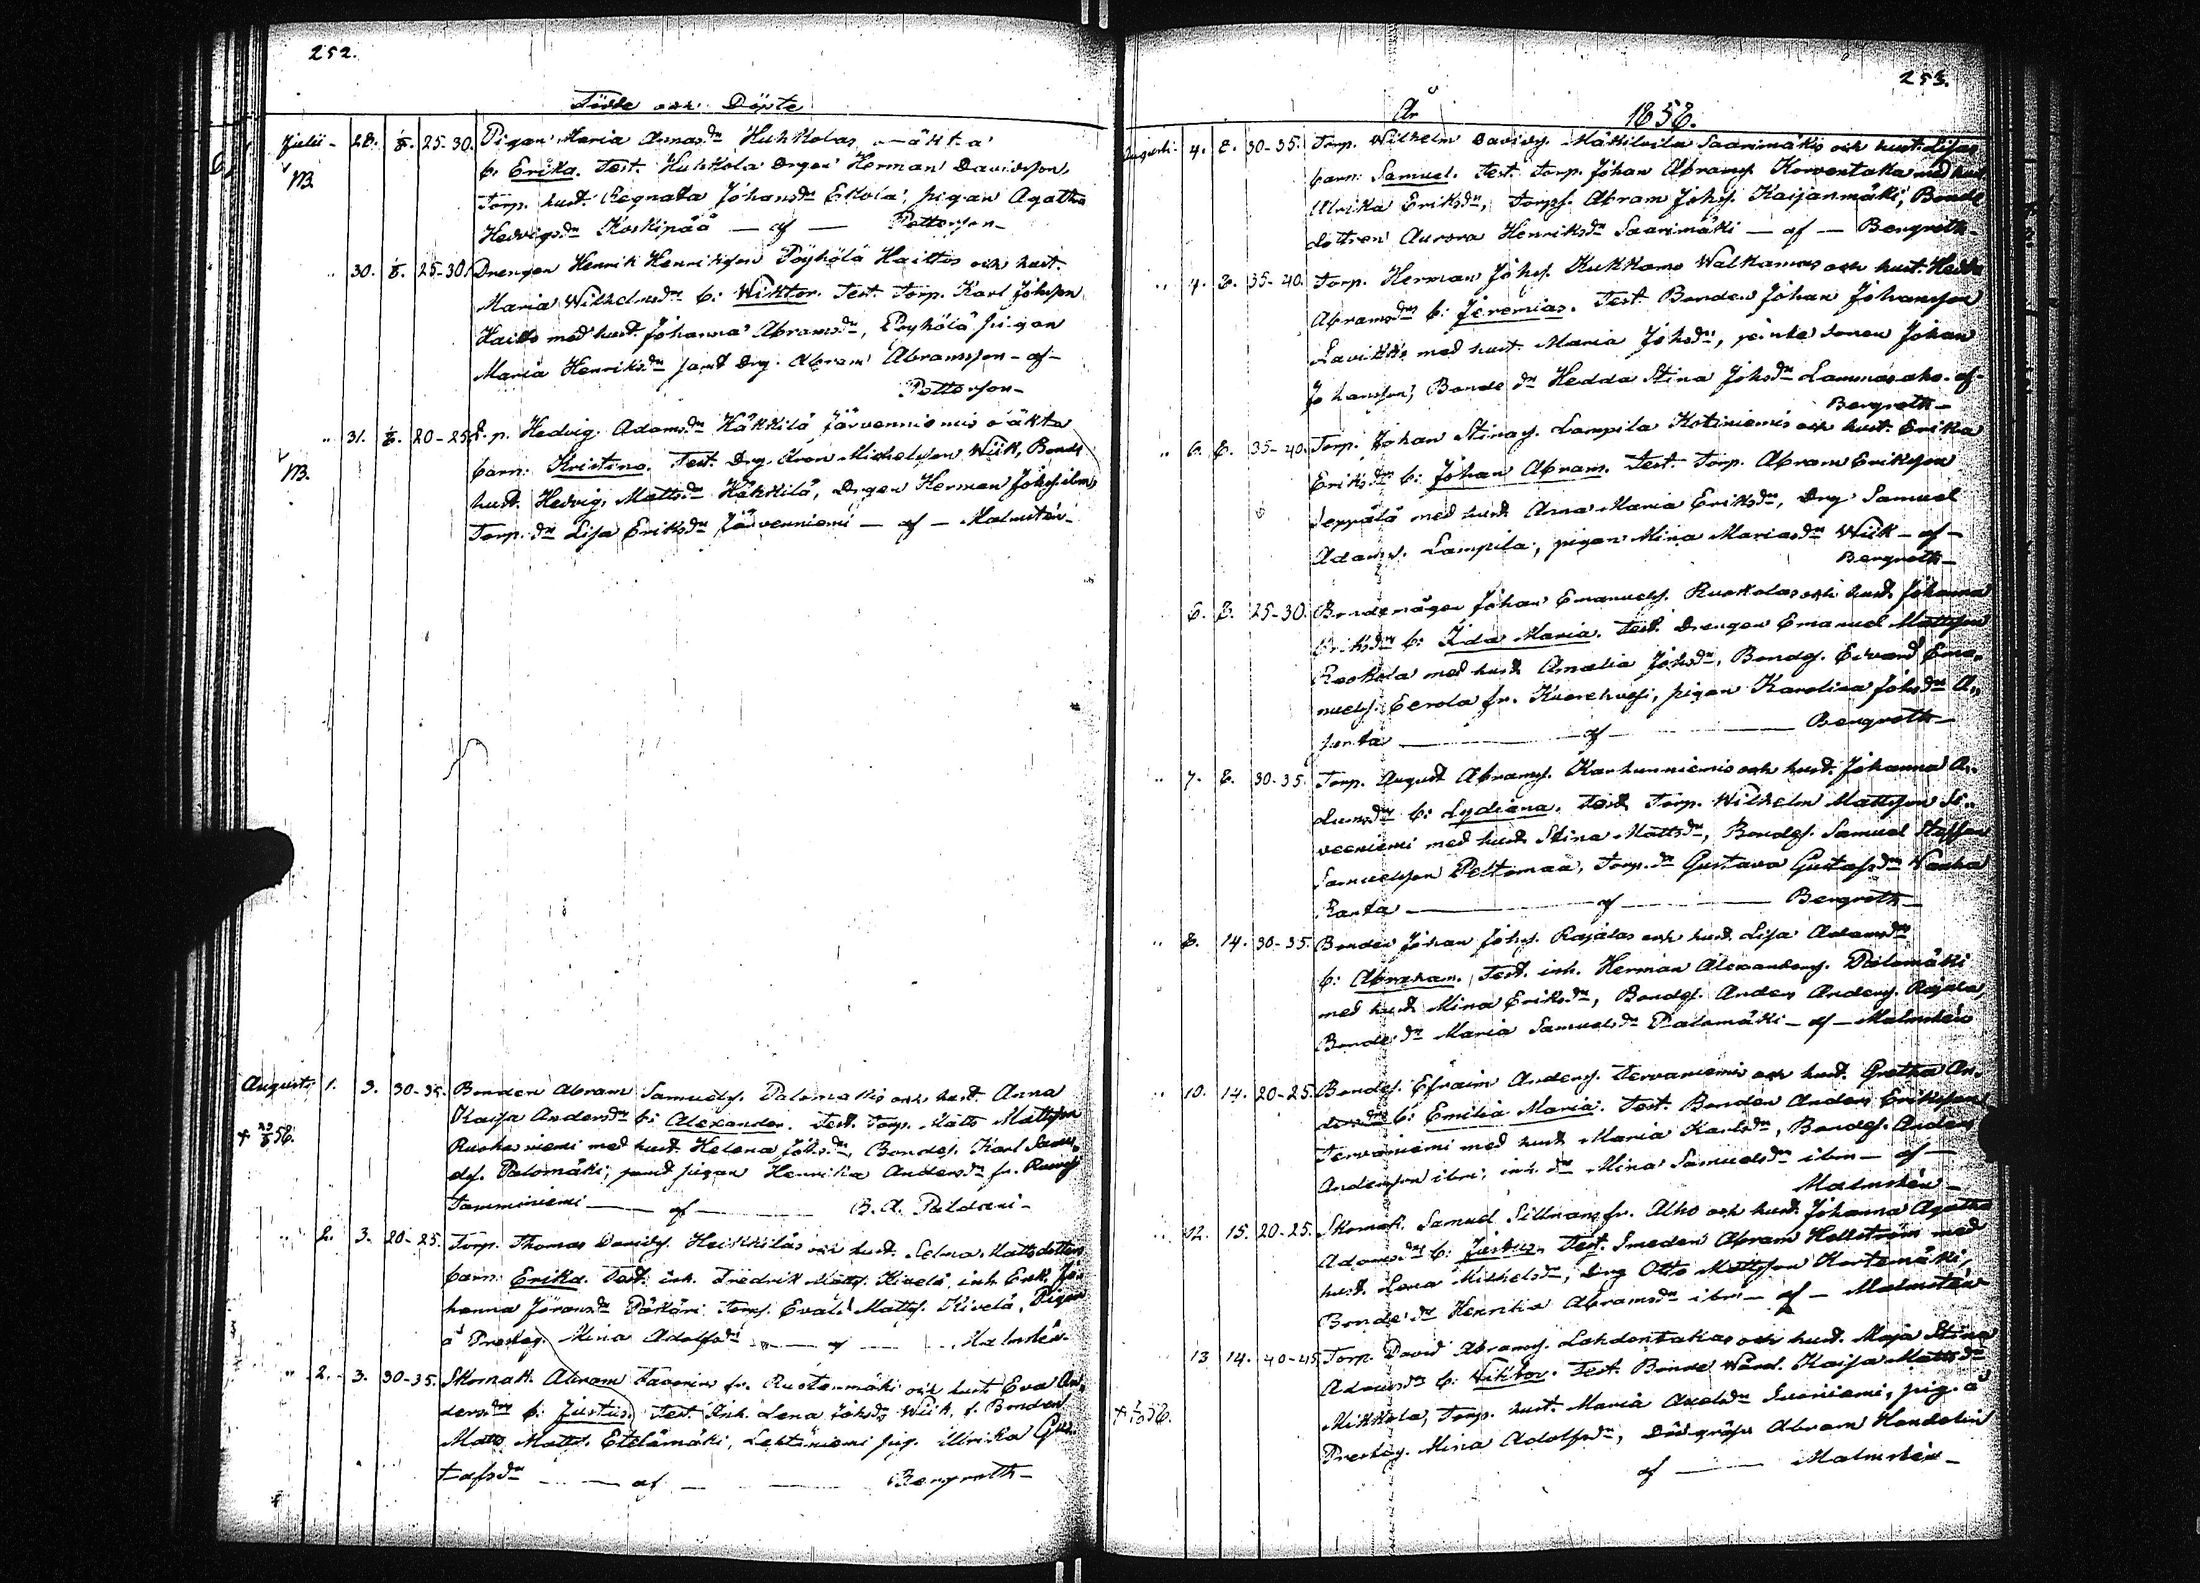 252.
Födde och Döpte
Julii - 28. 1/8. 25-30. Pigan Maria Annasdr Huhkolas oäkta
NB. b: Erika. Test. Huhkola Drgen Herman Davidsson,
Torp. hust. Regnata Johansdr Eskola, pigan Agatha
Hedvigsdr Koskipää — af — Pettersson -
" 30. 1/8. 25-30. Drengen Henrik Henriksson Pöyhölä Haittos och hust.
Maria Wilhelmsdr b: Wiktor. Test. Torp. Karl Johsson
Haitto med hust. Johanna Abramsdr, Pöyhölä pigan
Maria Henriksdr samt Drg. Abram Abramsson - af -
Pettersson -
" 31. 1/8. 20-25. p. Hedvig Adamsdr Häkkilä Järvenniemis oäkta
NB. barn: Kristina. Test. Drg. Aron Michelsson Wiik, Bonde
hust. Hedvig Mattsdr Häkkilä, Drgen Herman Johss. ibm,
Torp. dr Lisa Eriksdr Järvenniemi — af — Malmstén -
Augusti 1. 3. 30-35. Bonden Abram Samuelss. Palomäkis och hust. Anna
Kaisa Andersdr b: Alexander. Test. Torp. Matts Mattsson
+ 23/8 58. niemi med hust. Helena Johsdr, Bondes. Karl
Palomäki, samt pigan Henrika Andersdr fr.
Tamminiemi — af — B. A. Paldani -
" 2. 3. 20-25. Torp. Thomas Davidss. Heikkiläs och hust. Selma Mattsdotters
barn: Erika. Test. inh. Fredrik Mattss. Kivelä, inh. Enk. Jo-
hanna Jöransdr Torps. Evald Mattss. Kivelä, Pigan
å Prestbg. Mina Adolfsdr — af — Malmstén -
" 2. 3. 30-35. Skomak. Abram fr. Rustenmäki och hust. Eva An-
dersdr b: Justus. Test. Inh. Lena Johsdr Wiik, f. Bonden
Matts Mattss. Etelämäki, Lehtiniemi pig. Ulrika Gus-
tafsdr — af — Bergroth -
253.
År 1858.
Augusti. 4. 8. 30-35. Torp. Wilhelm Davidss. Mäkilmila Saarimäkis och hust. Lisas
barn: Samuel. Test. Torp. Johan Abramss. Korventaka med hust.
Ulrika Eriksdr, Torps. Abram Johss. Kaijanmäki, Bonde
dottren Aurora Henriksdr Saarimäki — af — Bergroth -
" 4. 8. 35-40. Torp. Herman Johss. Kukkamo Walkamas och hust. Hedda
Abramsdrs b: Jeremias. Test. Bonden Johan Johansson
Lavikko med hust. Maria Johsdr, enke sonen Johan
Johansson, Bonde dr Hedda Stina Johsdr Lammasaho. af -
Bergroth -
" 6. 8. 35-40. Torp. Johan Stinas. Lampila Kotiniemis och hust. Erika
Eriksdr b: Johan Abram. Test. Torp. Abram Eriksson
Seppälä med hust. Anna Maria Eriksdr, Drg. Samuel
Adamss. Lampila, pigan Mina Mariasdr Wiik - af -
Bergroth -
6. 8. 25-30. Bondemågen Johan Emanuelss. Ruokolas och hust. Johanna
Eriksdrs b: Ida Maria. Test. Drengen Emanuel Mattsson
Ruokola med hust. Amalia Johsdr, Bondes. Edvard Ema-
nuelss. Eerola fr. Kuorehvesi, pigan Karolina Johsdr A-
junta — af — Bergroth -
" 7. 8. 30-35. Torp. August Abramss. Karhunniemis och hust. Johanna A-
damsdrs b: Lydiana. Test. Torp. Wilhelm Mattsson
med hust. Stina Mattsdr, Bondes. Samuel Staffan
Samuelsson Peltomaa, Torp. dr Gustava Gustafsdr Wanha
Ranta — af — Bergroth -
" 8. 14. 30-35. Bonden Johan Johss. Rajalas och hust. Lisa Adamsdrs
b: Abraham. Test. inh. Herman Alexanders. Palomäki
med hust. Mina Eriksdr, Bondes. Anders Anderss. Rajala,
Bonde dr Maria Samuelsdr Palomäki - af - Malmstén
" 10. 14. 20-25. Bondes. Efraim Anderss. Tervaniemis och hust. Gretha An-
dersdrs b: Emilia Maria. Test. Bonden Anders Eriksson
Tervaniemi med hust. Maria Karlsdr, Bondes. Anders
Andersson ibm, inh. dr Mina Samuelsdr ibm — af —
Malmstén -
" 12. 15. 20-25. Skomak. Samuel Sillmans fr. Alho och hust. Johanna Agatha
Adamsdrs b: Justus. Test. Smeden Abram Hellström med
hust. Lena Michelsdr, Drg. Otto Mattsson Kortemäki,
Bonde dr Henrika Abramsdr ibm — af — Malmstén
13 14. 40-45. Torp. David Abramss. Lahdentakas och hust. Maja Stina
Adamsdrs b: Wiktor. Test. Bonde Wärd. Kaisa Mattsdr
+ 1/10 58. Mikkola, Torp. hust. Maria Axelsdr Suoniemi, pig. å
Prestbg. Mina Adolfsdr, Dödgräf. Abram Handolin
af — Malmstén -